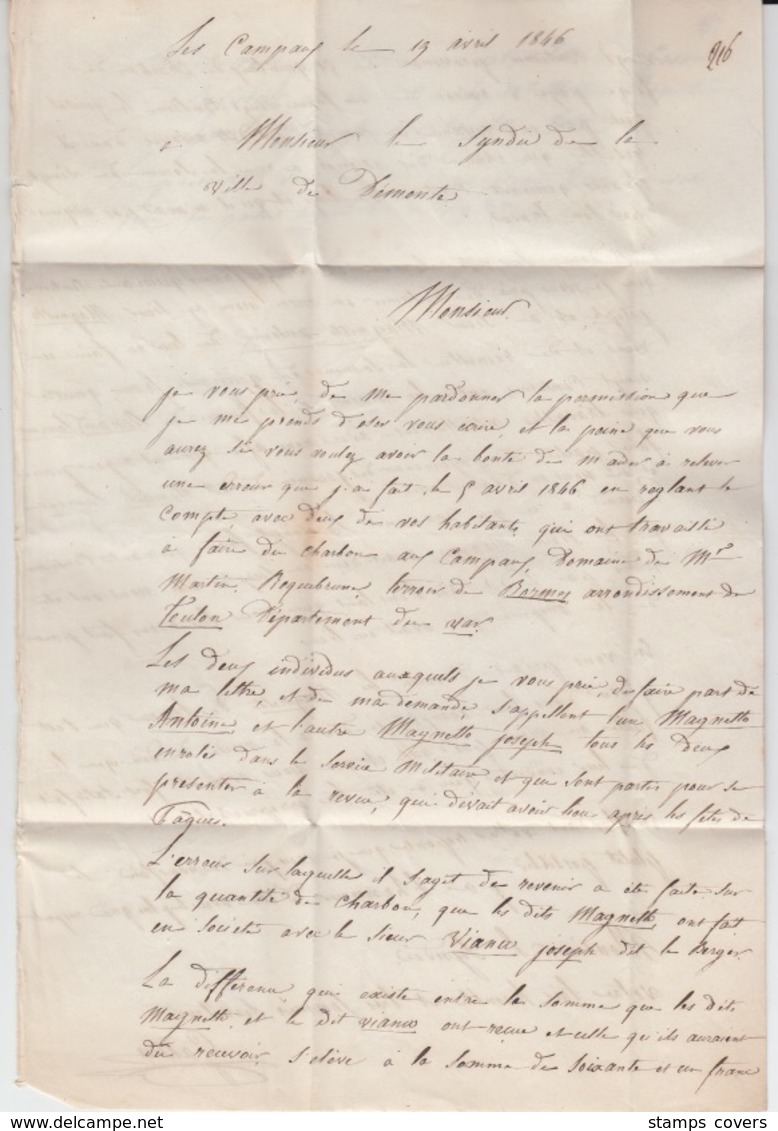 Les Campaux le 19 avril 1846
216
a Monsieur le Syndic de la
ville de Démonte
Monsieur
je vous prie, de me pardonner la permission que
je me prends d'oser vous écrire, et la peine que vous
aurez si vous voulez avoir la bonté de m'ader à relever
une erreur que j'ai fait, le 5 avril 1846 en reglant le
Compte, avec deux de vos habitants, qui ont travaillé
à faire du charbon aux Campaux, Domaine de Mr
Martin Roquebrune, terroir de Bormes arrondissement de
Toulon Département du var.
Les deux individus auxquels je vous prie, de faire part de
ma lettre, et de ma demande, s'appellent l'un Magnetto
Antoine et l'autre Magnetto joseph tous les deux
enrolés dans le service Militaire, et qui sont partis pour se
presenter à la revue, qui devait avoir lieu après les fêtes de
Pâques.
L'erreur sur laquelle il s'aget de revenir a été faite sur
la quantité de charbon, que les dits Magnetto, ont fait
en société avec le sieur Vianco joseph dit le Berger.
La differance, qui existe entre la somme que les dits
Magnetto, et le dit vianco ont reçue et celle qu'ils auraient
du recevoir, s'elève à la somme de soixante et un franc
stamps covers